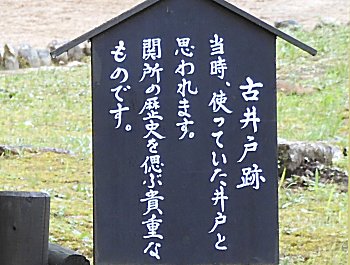 古井戸跡
当時、使っていた井戸と
思われます。
関所の歴史を偲ぶ貴重な
ものです。